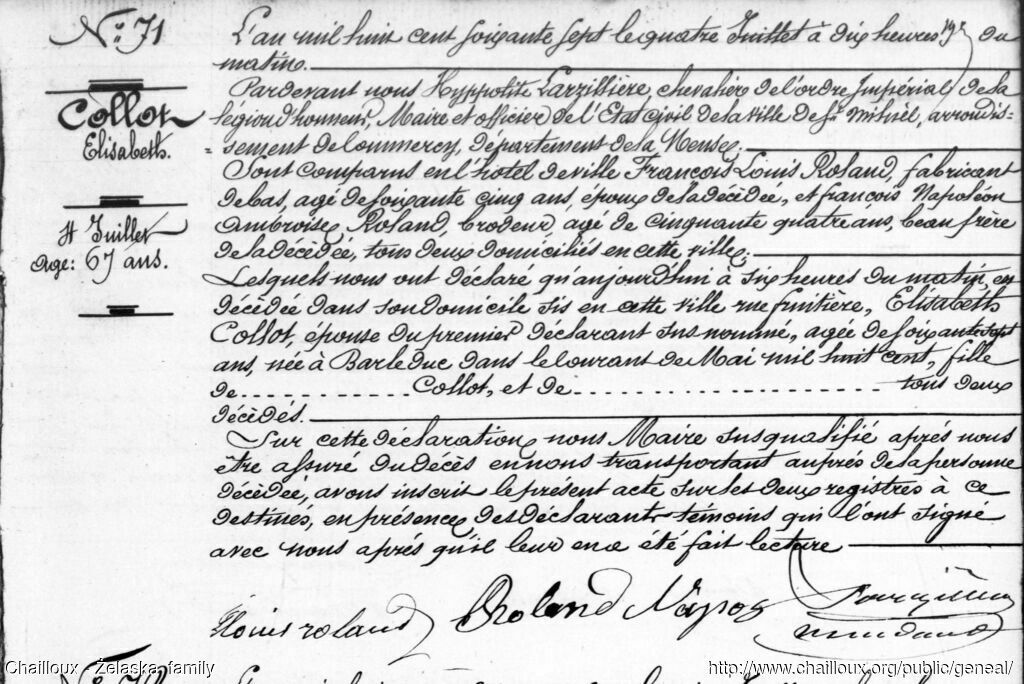 N° 71
Collot
Elisabeth.
4 Juillet
Age: 67 ans.
L'an mil huit cent soixante sept le quatre Juillet à dix heures du
matin.
Pardevant nous Hyppolite Larzillière, chevalier de l'ordre Impérial de la
légion d'honneur, Maire et officier de l'Etat civil de la ville de St. Mihiel, arrondis-
sement de Commercy, département de la Meuse.
Sont comparus en l'hôtel de ville François Louis Roland, fabricant
de bas, agé de soixante cinq ans, époux de la décédée, et françois Napoléon
Ambroise Roland, brodeur, agé de cinquante quatre ans, beau frère
de la décédée, tous deux domiciliés en cette ville.
Lesquels nous ont déclaré qu'aujourd'hui à six heures du matin, est
décédée dans son domicile sis en cette ville rue fruitiere, Elisabeth
Collot, épouse du premier déclarant sus nommé, agée de soixante sept
ans, née à Bar le duc dans le courant de Mai mil huit cent, fille
de.............. Collot, et de ........................ tous deux
décédés.
Sur cette déclaration, nous Maire susqualifié après nous
être assuré du décès en nous transportant auprès de la personne
décédée, avons inscrit le présent acte sur les deux registres à ce
destinés, en présence des déclarants témoins qui l'ont signé
avec nous après qu'il leur en a été fait lecture
Louis roland
Roland Napog
Chailloux - Żelaska family
http://www.chailloux.org/public/geneal/